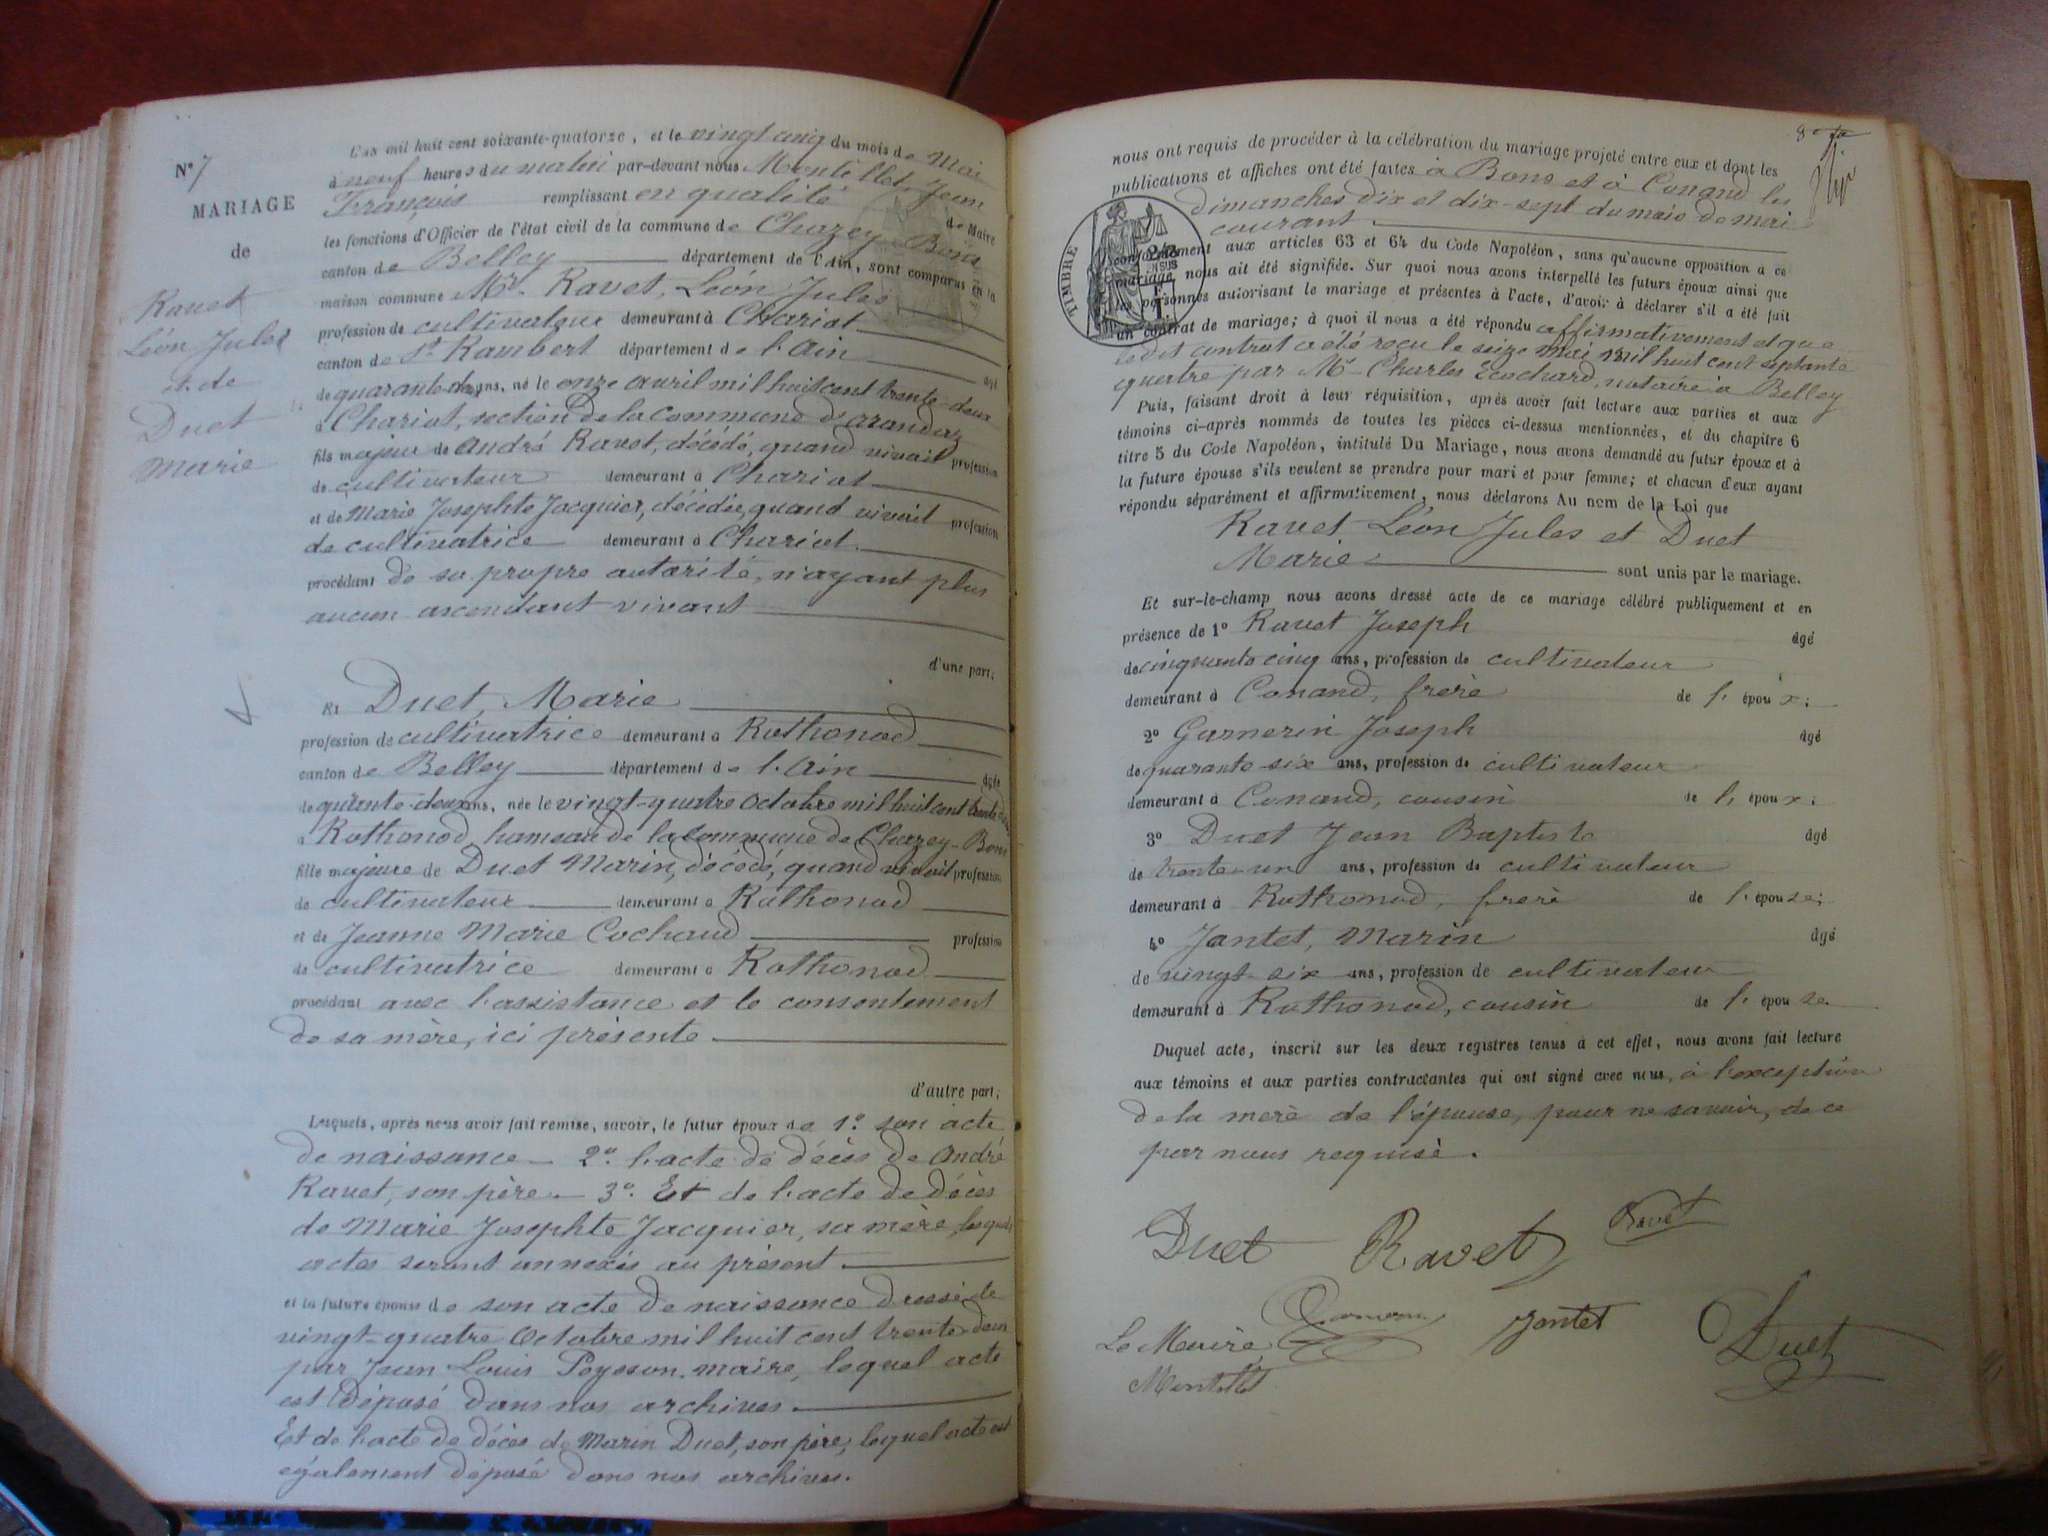 N° 7
MARIAGE
de
Ravet
Léon Jules
et de
Duet
Marie
L'an mil huit cent soixante-quatorze, et le vingt cinq du mois de Mai
à neuf heures du matin par-devant nous Montillet, Jean
François remplissant en qualité de Maire
les fonctions d'Officier de l'état civil de la commune de Chazey-Bons
canton de Belley département de l'Ain, sont comparus en la
maison commune Mr. Ravet, Léon Jules
profession de cultivateur demeurant à Chariot
canton de St Rambert département de l'Ain âgé
de quarante deux ans, né le onze avril mil huit cent trente-deux
à Chariot, section de la commune d'arandaz
fils majeur de André Ravet, décédé, quand vivait profession
de cultivateur demeurant à Chariot
et de Marie Josephte Jacquier, décédée, quand vivait profession
de cultivatrice demeurant à Chariot
procédant de sa propre autorité, n'ayant plus
aucun ascendant vivant
d'une part;
Et Duet, Marie
profession de cultivatrice demeurant à Rothonod
canton de Belley département de l'Ain âgée
de quarante-deux ans, née le vingt-quatre Octobre mil huit cent trente
à Rothonod, hameau de la commune de Chazey-Bons
fille majeure de Duet Marin, décédé, quand vivait profession
de cultivateur demeurant à Rothonod
et de Jeanne Marie Cochaud profession
de cultivatrice demeurant à Rothonod
procédant avec l'assistance et le consentement
de sa mère, ici présente
d'autre part;
Lesquels, après nous avoir fait remise, savoir, le futur époux de 1° son acte
de naissance - 2° l'acte de décès de André
Ravet, son père - 3° Et de l'acte de décès
de Marie Josephte Jacquier, sa mère, lesquels
actes seront annexés au présent
et la future épouse de son acte de naissance dressé le
vingt-quatre Octobre mil huit cent trente deux
par Jean Louis Poysson, maire, lequel acte
est déposé dans nos archives.
Et de l'acte de décès de Marin Duet, son père, lequel acte est
également déposé dans nos archives.
nous ont requis de procéder à la célébration du mariage projeté entre eux et dont les
publications et affiches ont été faites à Bons et à Conand les
dimanches dix et dix-sept du mois de mai
courant
TIMBRE
conformément aux articles 63 et 64 du Code Napoléon, sans qu'aucune opposition à ce
mariage nous ait été signifiée. Sur quoi nous avons interpellé les futurs époux ainsi que
les personnes autorisant le mariage et présentes à l'acte, d'avoir à déclarer s'il a été fait
un contrat de mariage; à quoi il nous a été répondu affirmativement et que
le dit contrat a été reçu le seize Mai mil huit cent septante
quatre par Mr Charles Ecochard, notaire à Belley
Puis, faisant droit à leur réquisition, après avoir fait lecture aux parties et aux
témoins ci-après nommés de toutes les pièces ci-dessus mentionnées, et du chapitre 6
titre 5 du Code Napoléon, intitulé Du Mariage, nous avons demandé au futur époux et à
la future épouse s'ils veulent se prendre pour mari et pour femme; et chacun d'eux ayant
répondu séparément et affirmativement, nous déclarons Au nom de la Loi que
Ravet Léon Jules et Duet
Marie sont unis par le mariage.
Et sur-le-champ nous avons dressé acte de ce mariage célébré publiquement et en
présence de 1° Ravet Joseph âgé
de cinquante cinq ans, profession de cultivateur
demeurant à Conand, frère de l'époux;
2° Garnerin Joseph âgé
de quarante-six ans, profession de cultivateur
demeurant à Conand, cousin de l'époux;
3° Duet Jean Baptiste âgé
de trente-un ans, profession de cultivateur
demeurant à Rothonod, frère de l'épouse;
4° Jantet, Marin âgé
de vingt-six ans, profession de cultivateur
demeurant à Rothonod, cousin de l'épouse
Duquel acte, inscrit sur les deux registres tenus à cet effet, nous avons fait lecture
aux témoins et aux parties contractantes qui ont signé avec nous, à l'exception
de la mère de l'épouse, pour ne savoir, de ce
par nous requise.
Duet Ravet Ravet
Le Maire Jantet Duet
Montillet